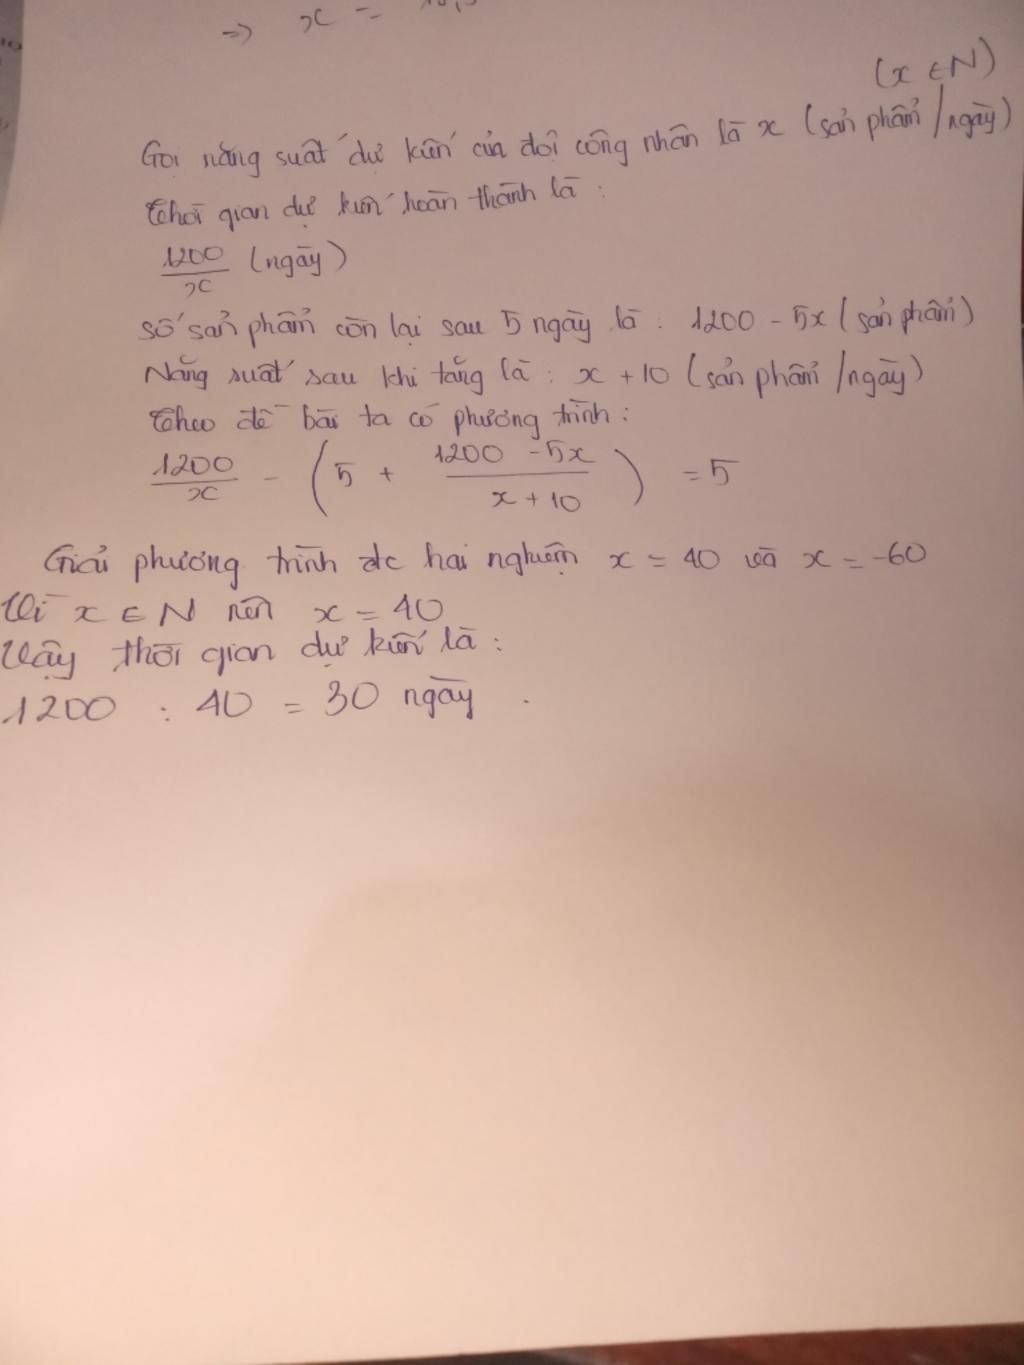 => x =
(x ∈ N)
Gọi năng suất dự kiến của đội công nhân là x (sản phẩm/ngày)
Thời gian dự kiến hoàn thành là :
1200/x (ngày)
số sản phẩm còn lại sau 5 ngày là : 1200 - 5x (sản phẩm)
Năng suất sau khi tăng là : x + 10 (sản phẩm/ngày)
Theo đề bài ta có phương trình :
1200/x - (5 + (1200 - 5x)/(x + 10)) = 5
Giải phương trình đc hai nghiệm x = 40 và x = -60
Vì x ∈ N nên x = 40
Vậy thời gian dự kiến là :
1200 : 40 = 30 ngày .